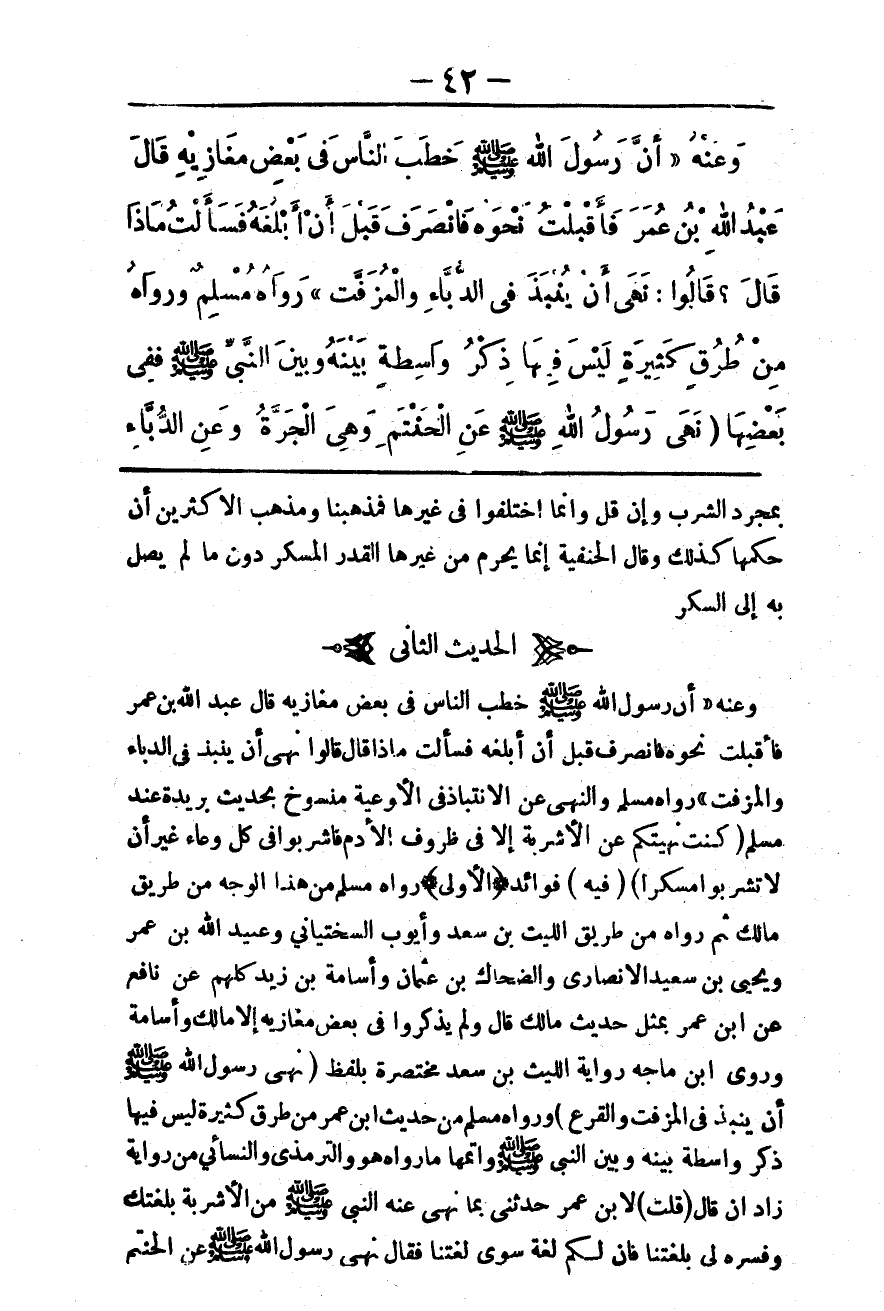 — ٤٢ —
وَعَنْهُ « أَنَّ رَسُولَ اللهِ ﷺ خَطَبَ النَّاسَ فِى بَعْضِ مَغَازِيْهِ قَالَ
عَبْدُ اللهِ بْنُ عُمَرَ فَأَقْبَلْتُ نَحْوَهُ فَانْصَرَفَ قَبْلَ أَنْ أَبْلُغَهُ فَسَأَلْتُ مَاذَا
قَالَ ؟ قَالُوا : نَهَى أَنْ يُنْبَذَ فِى الدُّبَّاءِ وَالْمُزَفَّتِ » رَوَاهُ مُسْلِمٌ وَرَوَاهُ
مِنْ طُرُقٍ كَثِيرَةٍ لَيْسَ فِيهَا ذِكْرُ وَاسِطَةٍ بَيْنَهُ وَبَيْنَ النَّبِىِّ ﷺ فَفِى
بَعْضِهَا ( نَهَى رَسُولُ اللهِ ﷺ عَنِ الْحَنْتَمِ وَهِىَ الْجَرَّةُ وَعَنِ الدُّبَّاءِ
بمجرد الشرب وإن قل وانما اختلفوا فى غيرها فمذهبنا ومذهب الاكثرين أن
حكمها كذلك وقال الحنفية إنما يحرم من غيرها القدر المسكر دون ما لم يصل
به إلى السكر
الحديث الثانى
وعنه « أن رسول الله ﷺ خطب الناس فى بعض مغازيه قال عبد الله بن عمر
فأقبلت نحوه فانصرف قبل أن أبلغه فسألت ماذا قال قالوا نهى أن ينبذ فى الدباء
والمزفت » رواه مسلم والنهى عن الانتباذ فى الأوعية منسوخ بحديث بريدة عند
مسلم ( كنت نهيتكم عن الأشربة إلا فى ظروف الأدم فاشربوا فى كل وعاء غير أن
لا تشربوا مسكرا ) ( فيه ) فوائد ﴿الأولى﴾ رواه مسلم من هذا الوجه من طريق
مالك ثم رواه من طريق الليث بن سعد وأيوب السختياني وعبيد الله بن عمر
ويحيى بن سعيد الانصارى والضحاك بن عثمان وأسامة بن زيد كلهم عن نافع
عن ابن عمر بمثل حديث مالك قال ولم يذكروا فى بعض مغازيه إلا مالك وأسامة
وروى ابن ماجه رواية الليث بن سعد مختصرة بلفظ ( نهى رسول الله ﷺ
أن ينبذ فى المزفت والقرع ) ورواه مسلم من حديث ابن عمر من طرق كثيرة ليس فيها
ذكر واسطة بينه وبين النبي ﷺ واتمها ما رواه هو والترمذى والنسائي من رواية
زاد ان قال (قلت) لابن عمر حدثنى بما نهى عنه النبي ﷺ من الأشربة بلغتك
وفسره لى بلغتنا فان لكم لغة سوى لغتنا فقال نهى رسول الله ﷺ عن الحنتم